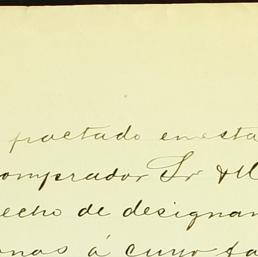 pactado en esta
comprador Sr
echo de designar
onas á cuyo fa